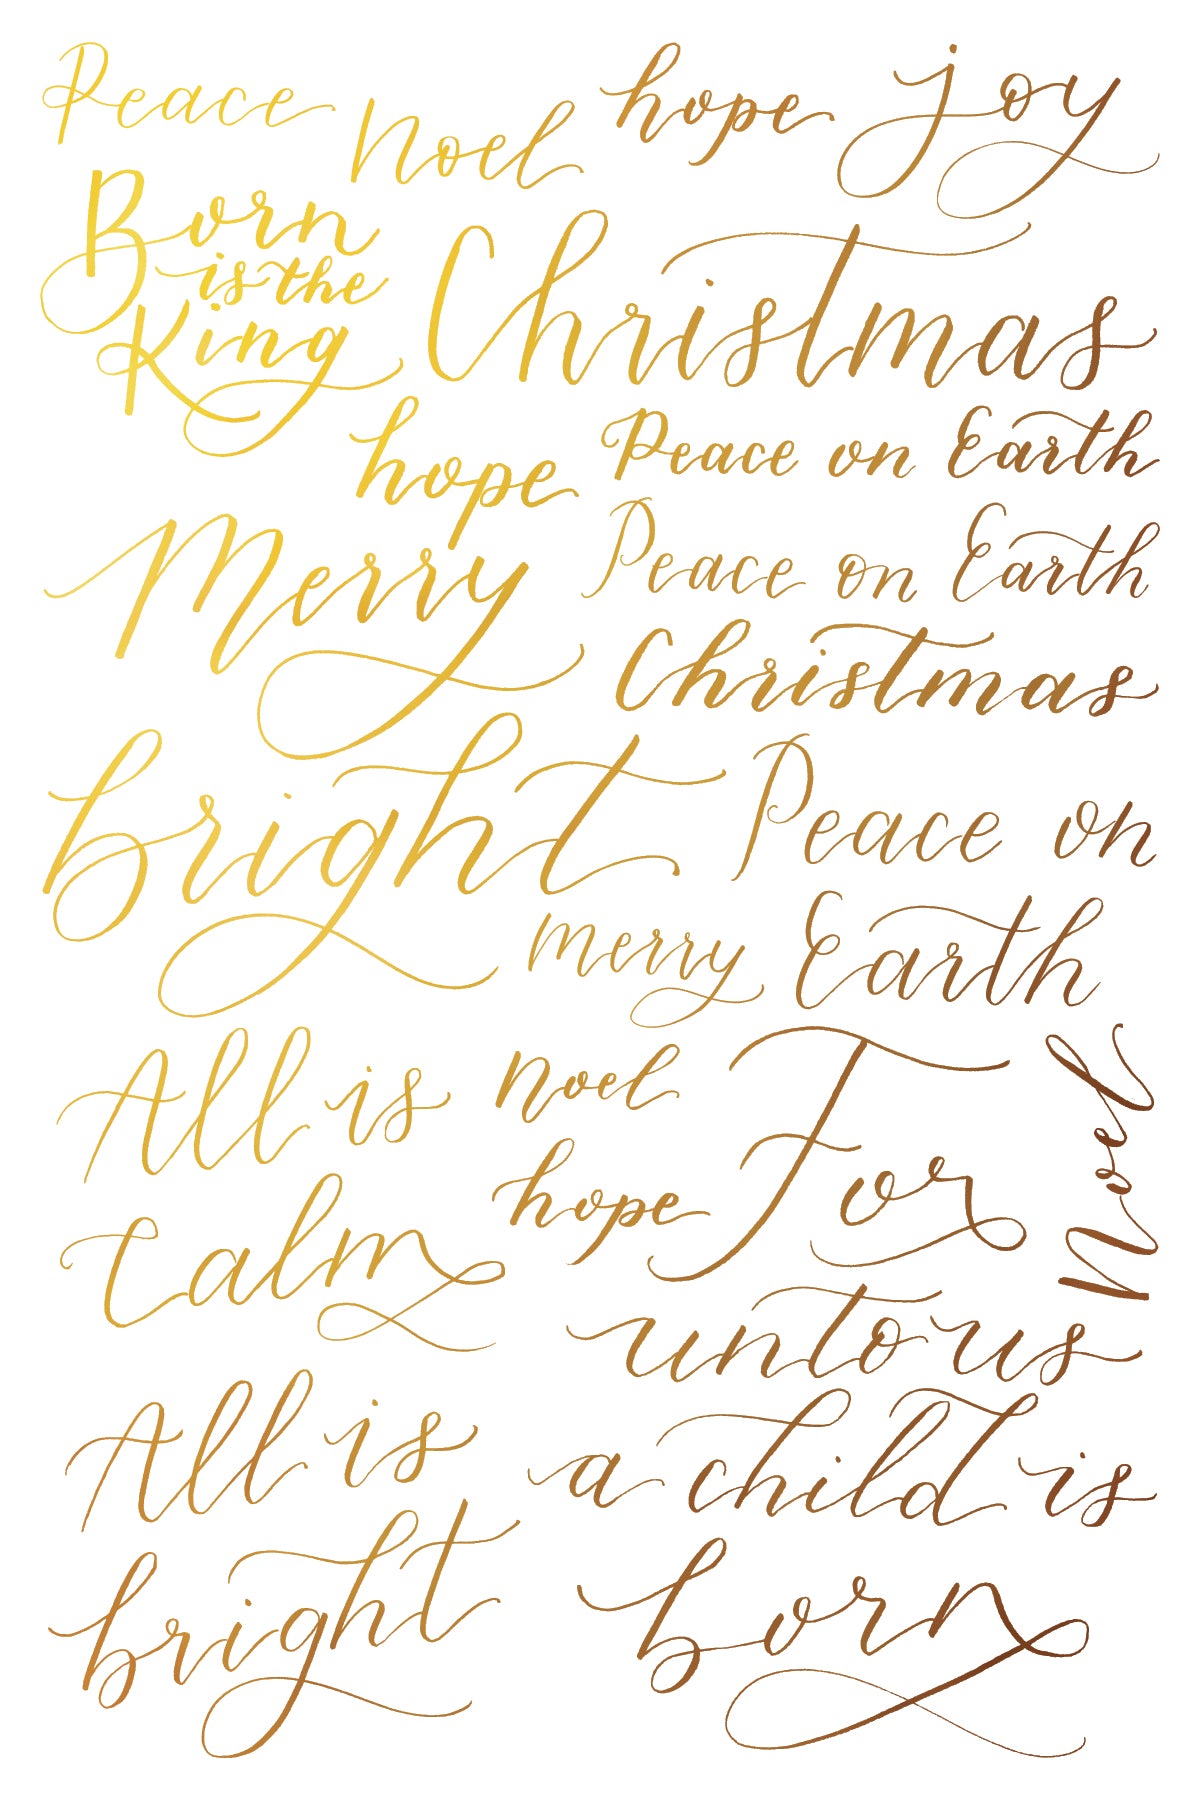 Peace
Noel
hope
joy
Born
is the
King
Christmas
hope
Peace on Earth
Merry
Peace on Earth
Christmas
bright
Peace on
Earth
merry
All is
Calm
noel
hope
For
unto us
a child is
born
Noel
All is
bright